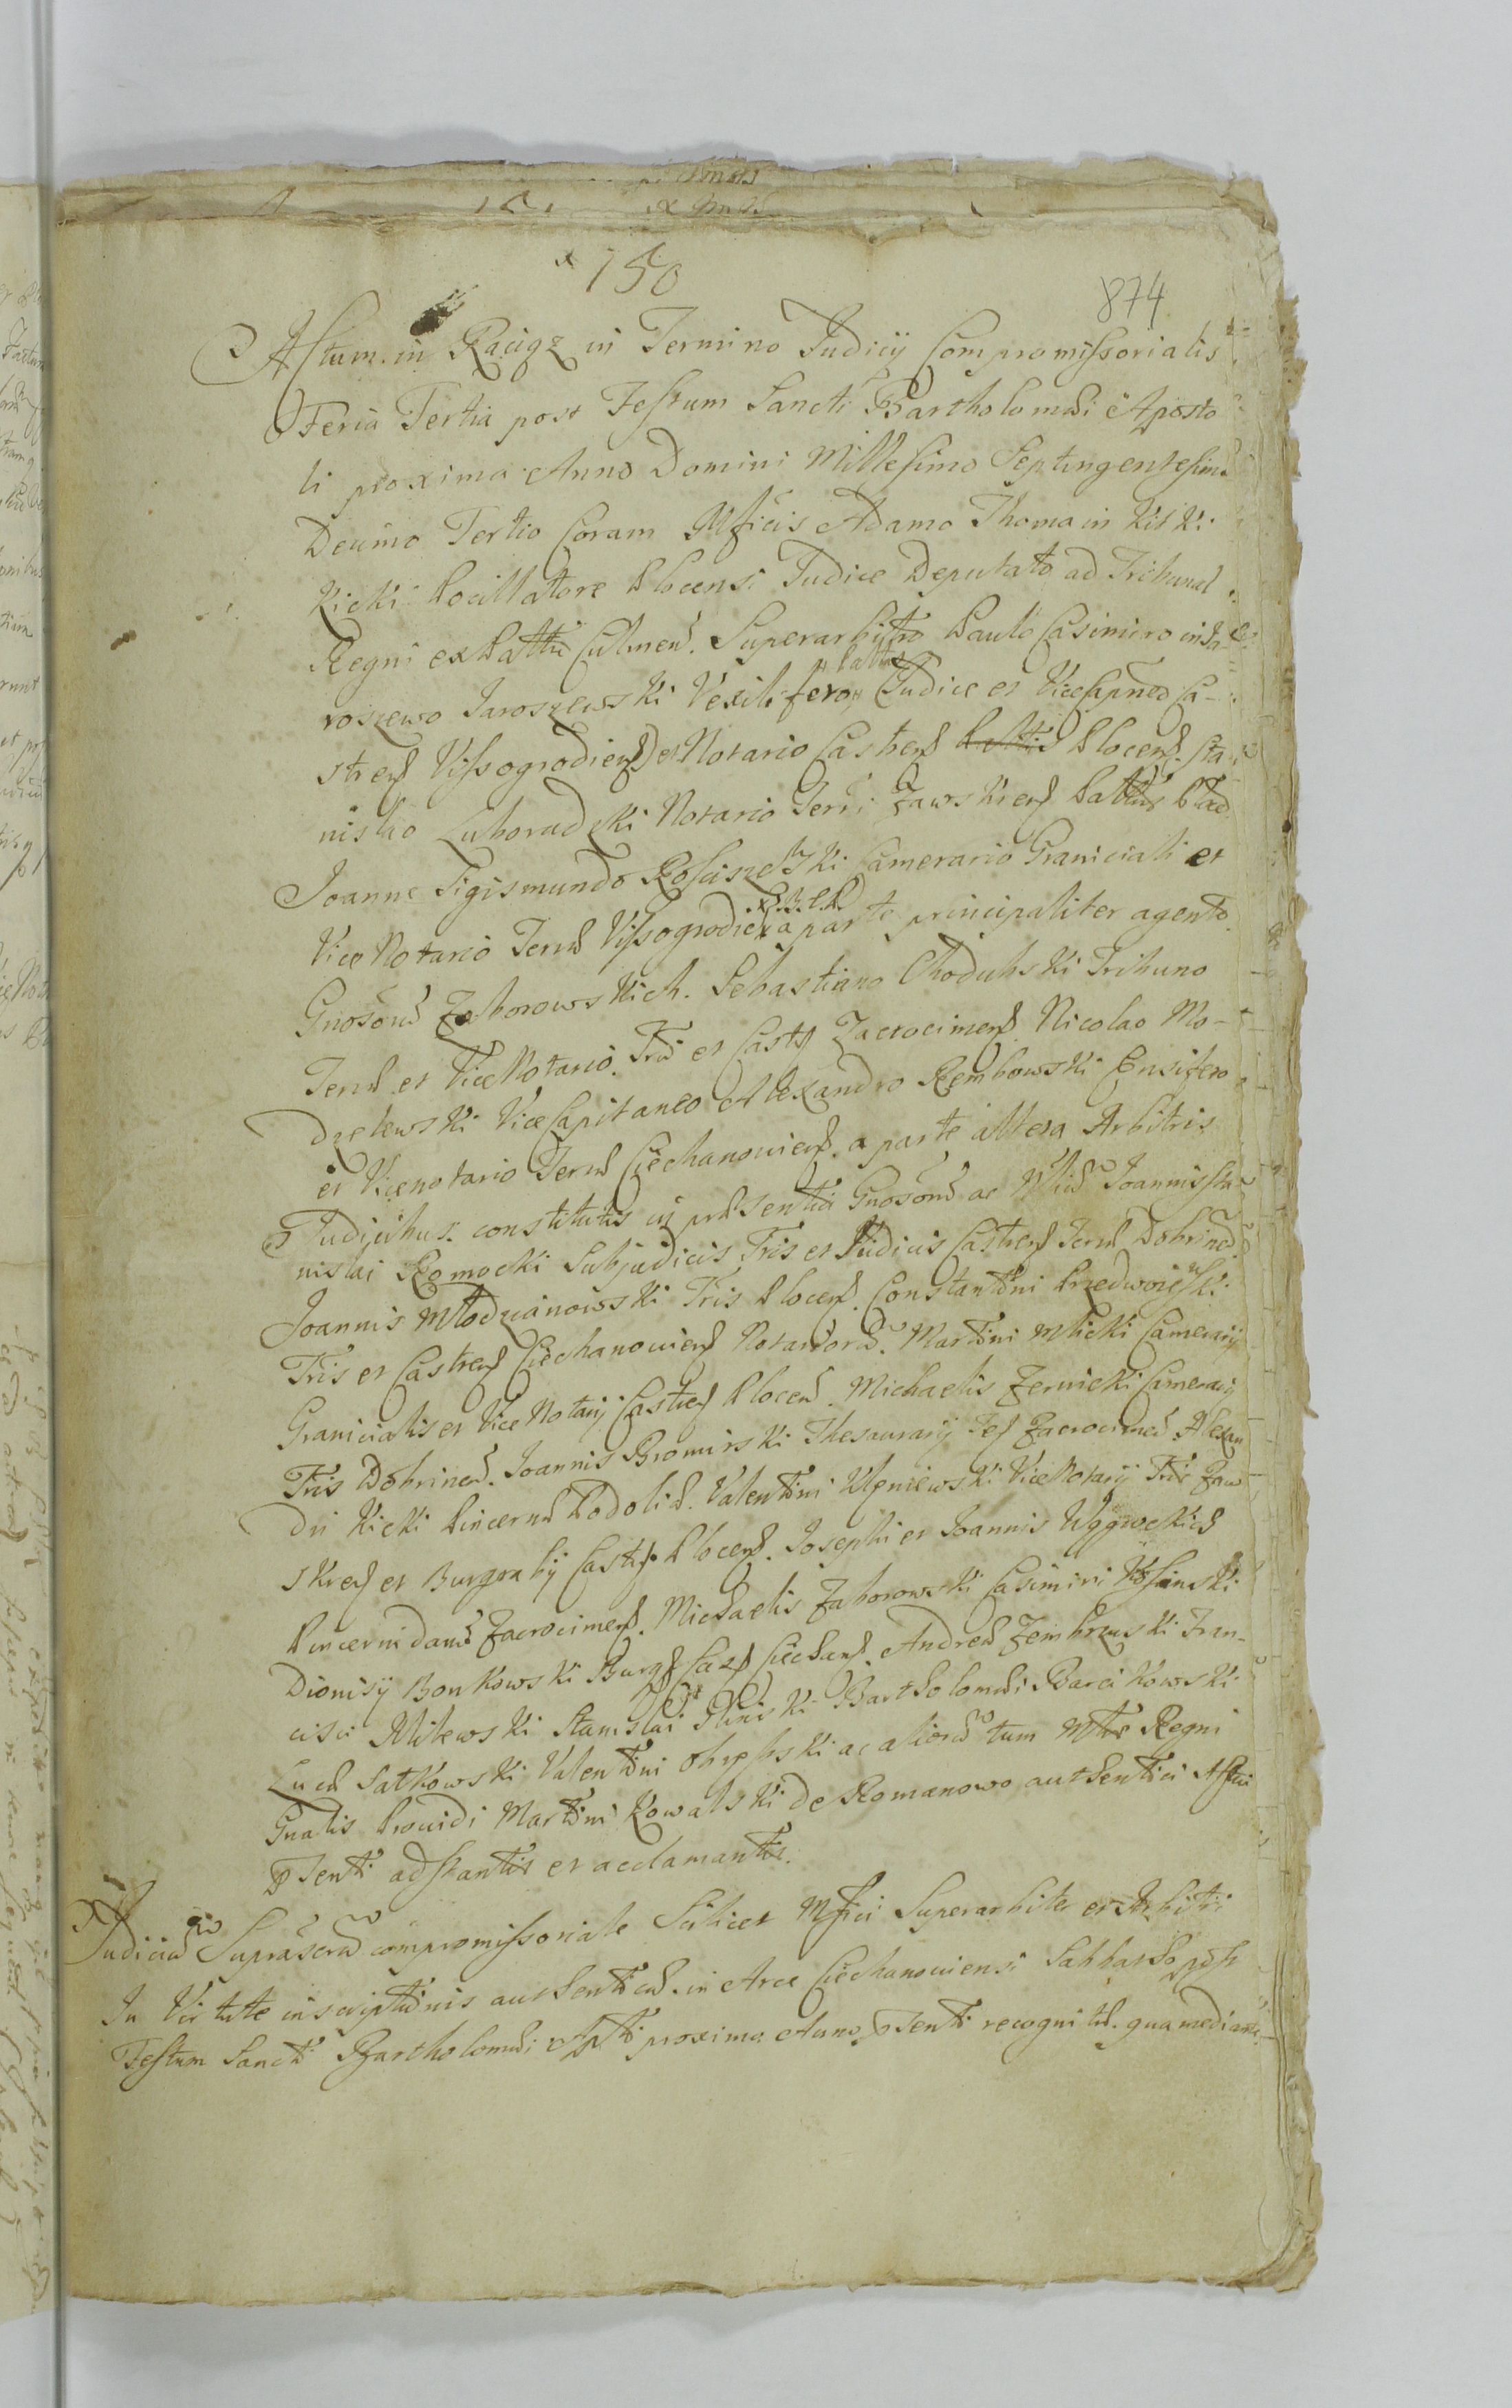 x 150
874
Actum in Raciąz in Termino Judicij Compromissorialis
Feria Tertia post Festum Sancti Bartholomæi Aposto
li proxima Anno Domini Millesimo Septingentesimo
Decimo Tertio Coram Mficis Adamo Thoma in Kitki
Kicki Pocillatore Plocensi Judice Deputato ad Tribunal
Regni ex Pattu Culmen. Superarbitro Paulo Casimiro in Ja-
roszewo Jaroszewski Vexilifero Pattus Judice et ViceCapneo Ca-
stren Vissogrodien et Notario Castren Plocen. Sta-
nislao Luboradzki Notario Terræ Zawskren Pattus Plocen
Joanne Sigismundo Rosciszewski Camerario Graniciali et
Vice Notario Terræ Vissogrodien a parte principaliter agente
Gnosorum Zaborowskich. Sebastiano Chodubski Tribuno
Terræ et Vice Notario Træ et Castr Zacrocimen. Nicolao Mo-
dzelewski ViceCapitaneo Alexandro Rembowski Ensifero
et Vicenotario Terræ Ciechanovien. a parte altera Arbitris
Judicibus. constitutis in præsentia Gnosorum ac Joannis Sta
nislai Romocki Subjudicis Tris et Judicis Castren Terræ Dobrinen
Joannis Młodzianowski Tris Plocen. Constantini Przedwoiewski
Tris et Castren Ciechanovien Notariorum. Martini Mlicki Camerarij
Granicialis et Vice Notarij Castren Plocen. Michaelis Zernicki Camerarij
Tris Dobrinen. Joannis Bromirski Thesaurarij Zacrocimen Alexan
dri Kicki Pincernæ Podoliæ. Valentini Klęniewski Vice Notarij Tris Zaw
skren et Burgrabij Castr Plocen. Josephi et Joannis
Pincernidarum Zacrocimen. Michaelis Zaborowski Casimiri Kossinski
Dionisij Bonkowski Burg Cast Ciechan. Andreæ Zembrzuski Fran-
cisci Milewski Stanislai Bartholomæi Barcikowski
Lucæ Satkowski Valentini Obrębski ac aliorum tum Mtis Regni
Gnalis Providi Martini Kowalski de Romanowo authentici
Psenti adstantis et acclamantis.
Judicium Suprascrum compromissoriale Scilicet Mfici Superarbiter et Arbitri
In Virtute inscriptionis authenticæ in Arce Ciechanoviensi Sabbatho post
Festum Sancti Bartholomæi Apti proximo Anno Psenti recognitæ. qua mediante